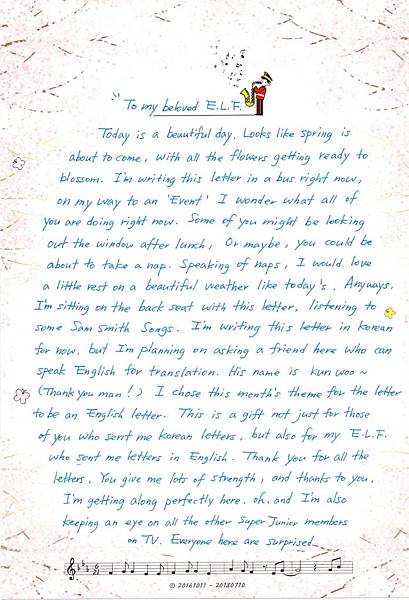 "To my beloved E.L.F.
Today is a beautiful day. Looks like spring is
about to come, with all the flowers getting ready to
blossom. I'm writing this letter in a bus right now,
on my way to an 'Event' I wonder what all of
you are doing right now. Some of you might be looking
out the window after lunch, Or maybe, you could be
about to take a nap. Speaking of naps, I would love
a little rest on a beautiful weather like today's. Anyways,
I'm sitting on the back seat with this letter, listening to
some Sam Smith Songs. I'm writing this letter in korean
for now. but I'm planning on asking a friend here who can
speak English for translation. His name is kun woo~
(Thank you man!) I chose this month's theme for the letter
to be an English letter. This is a gift not just for those
of you who sent me korean letters, but also for my E.L.F.
who sent me letters in English. Thank you for all the
letters, You give me lots of strength, and thanks to you,
I'm getting along perfectly here. oh. and I'm also
keeping an eye on all the other Super Junior members
on TV. Everyone here are surprised
© 20161011 - 20180710